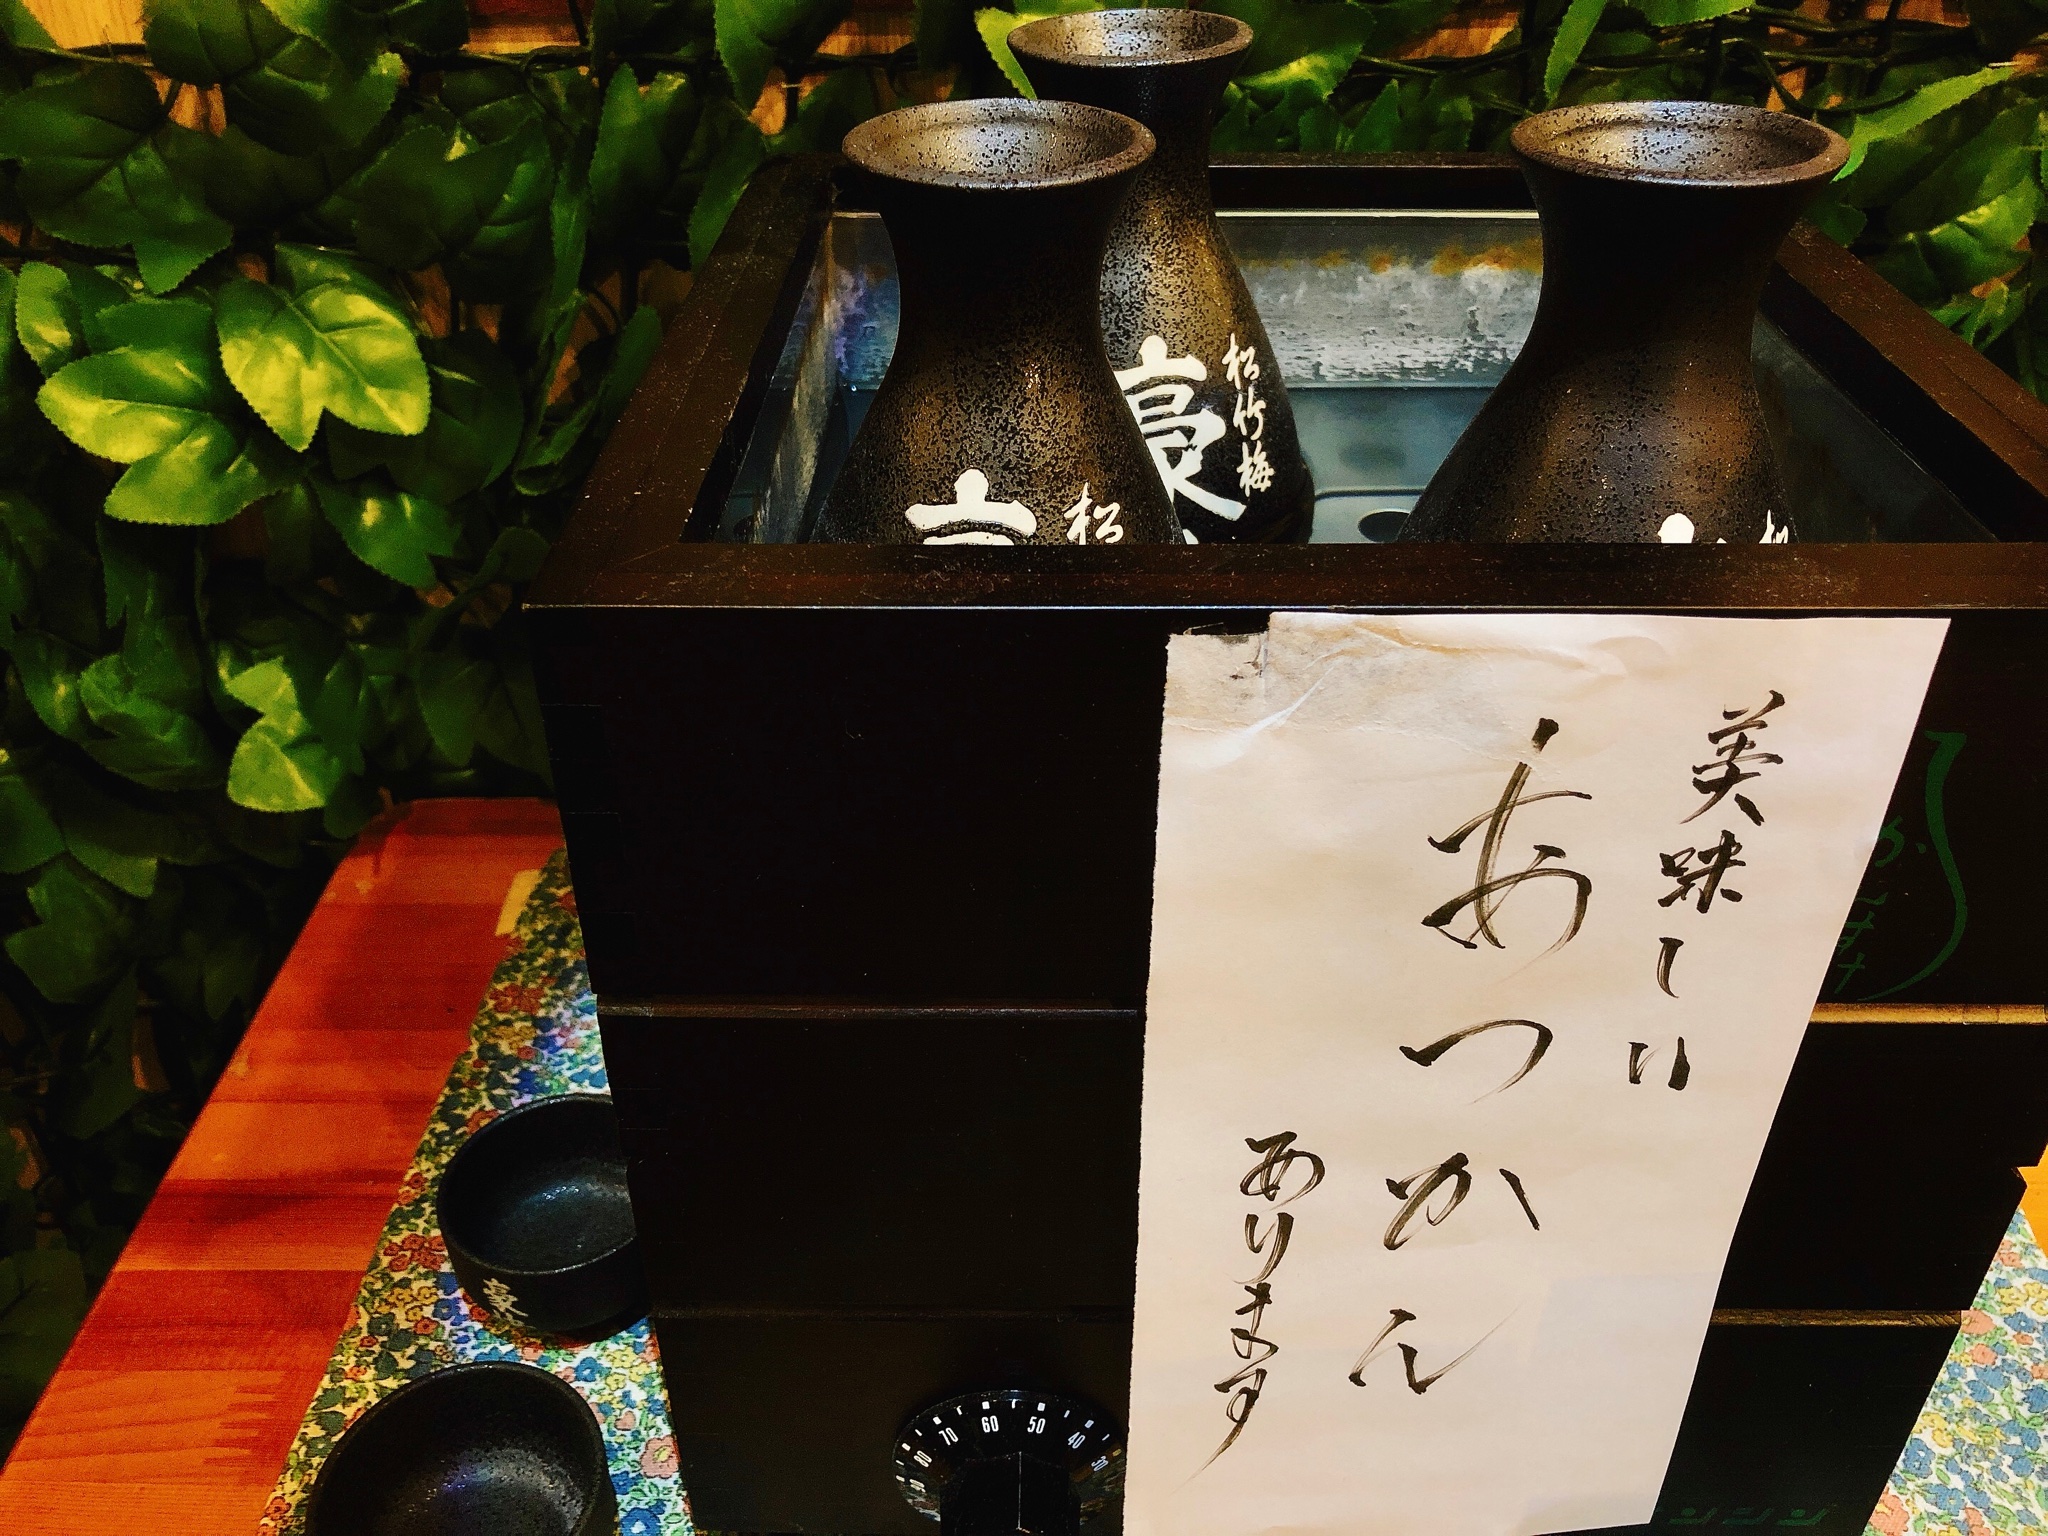 美味しい
あつかん
あります
松竹梅
豪
松
豪
80 70 60 50 40 30
かんすけ